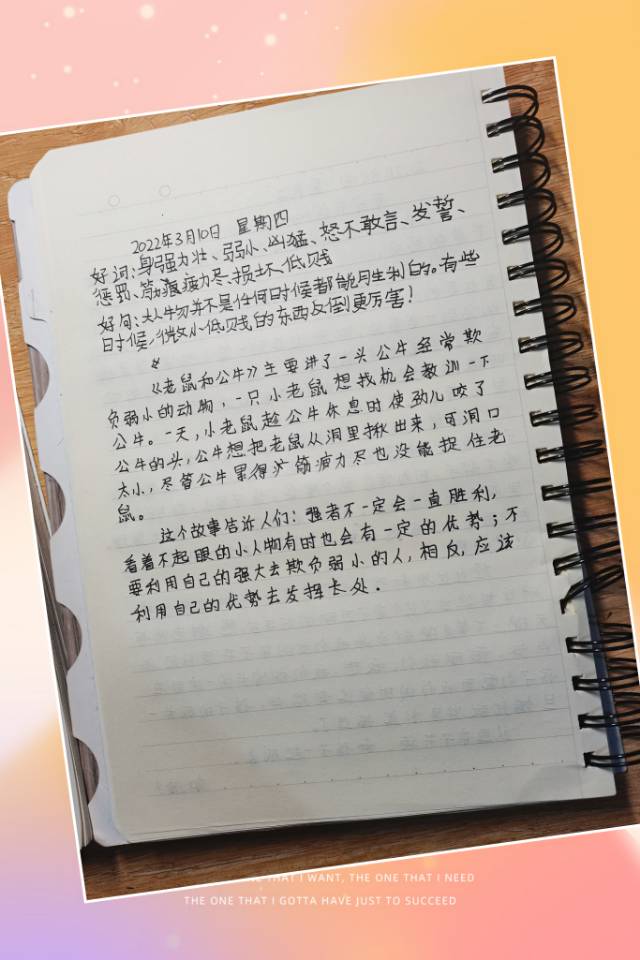 2022年3月10日 星期四
好词:身强力壮、弱小、凶猛、怒不敢言、发誓、
惩罚、筋疲力尽、损坏、低贱
好句:大人物并不是任何时候都能与生利的。有些
时候,微小低贱的东西反倒更厉害!
《老鼠和公牛》主要讲了一头公牛经常欺
负弱小的动物,一只小老鼠想找机会教训一下
公牛。一天,小老鼠趁公牛休息时使劲儿咬了
公牛的头,公牛想把老鼠从洞里揪出来,可洞口
太小,尽管公牛累得筋疲力尽也没能捉住老
鼠。
这个故事告诉人们:强者不一定会一直胜利,
看着不起眼的小人物有时也会有一定的优势;不
要利用自己的强大去欺负弱小的人,相反,应该
利用自己的优势去发挥长处.
THAT I WANT, THE ONE THAT I NEED
THE ONE THAT I GOTTA HAVE JUST TO SUCCEED